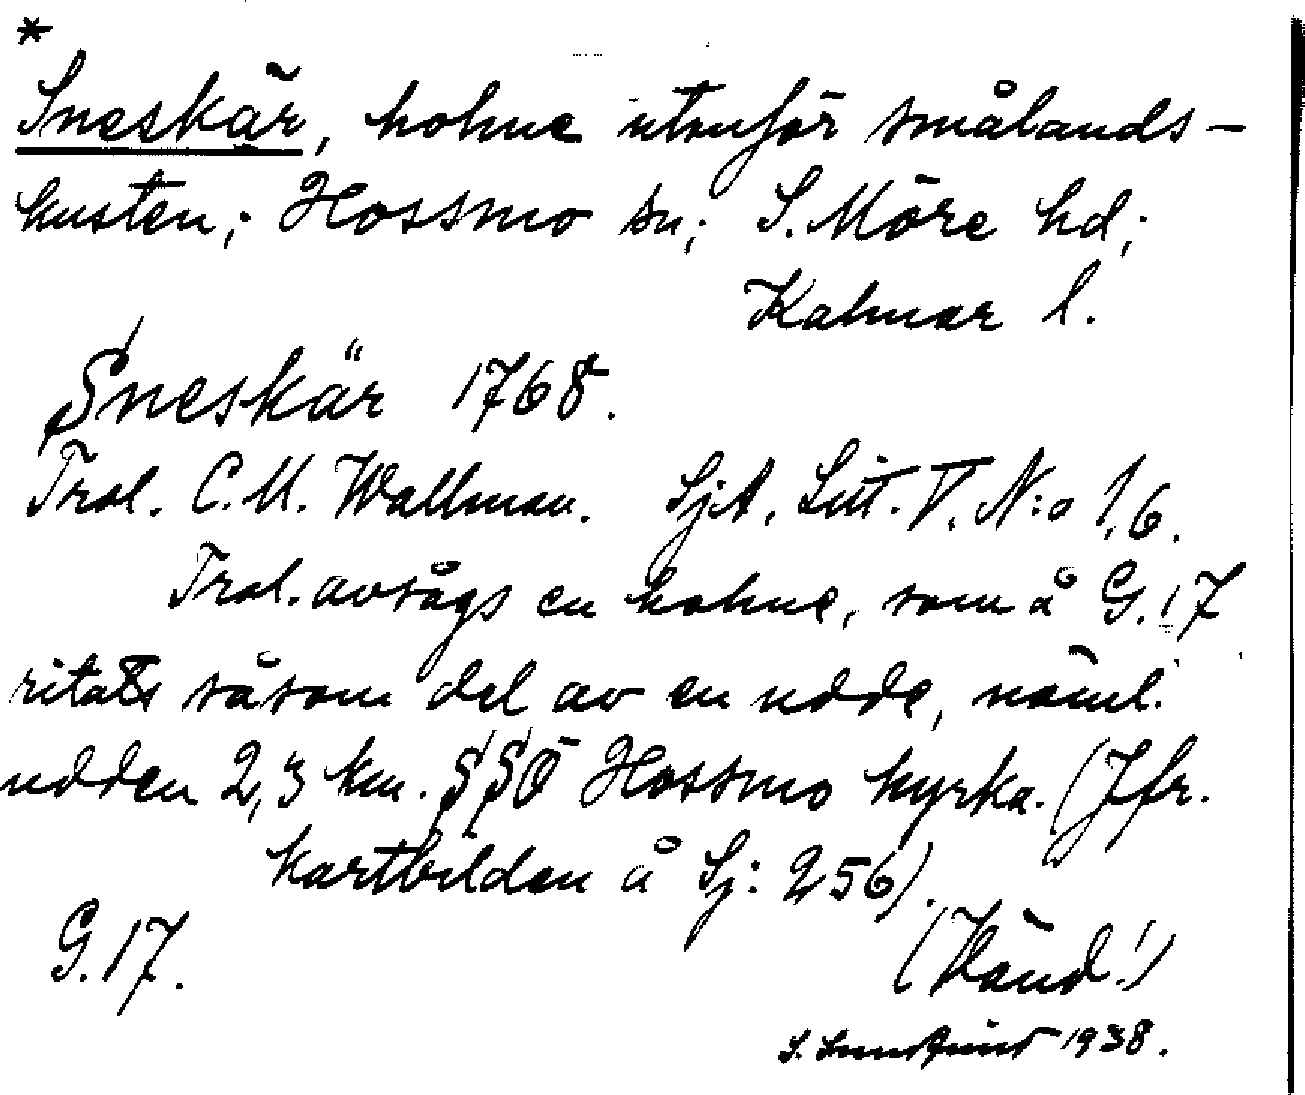 *
Sneskär, holme utanför smålands-
kusten; Hossmo sn; S. Möre hd;
Kalmar l.
Sneskär 1768.
Trol. C. M. Wallman. SjA, Litt. V. N:o 1,6.
Trol. avsågs en holme, som å G. 17
ritats såsom del av en udde, näml.
udden 2,3 km. SSÖ Hossmo kyrka. (Jfr.
kartbilden å Sj: 256).
G. 17.
(Vänd!)
S. 1938.